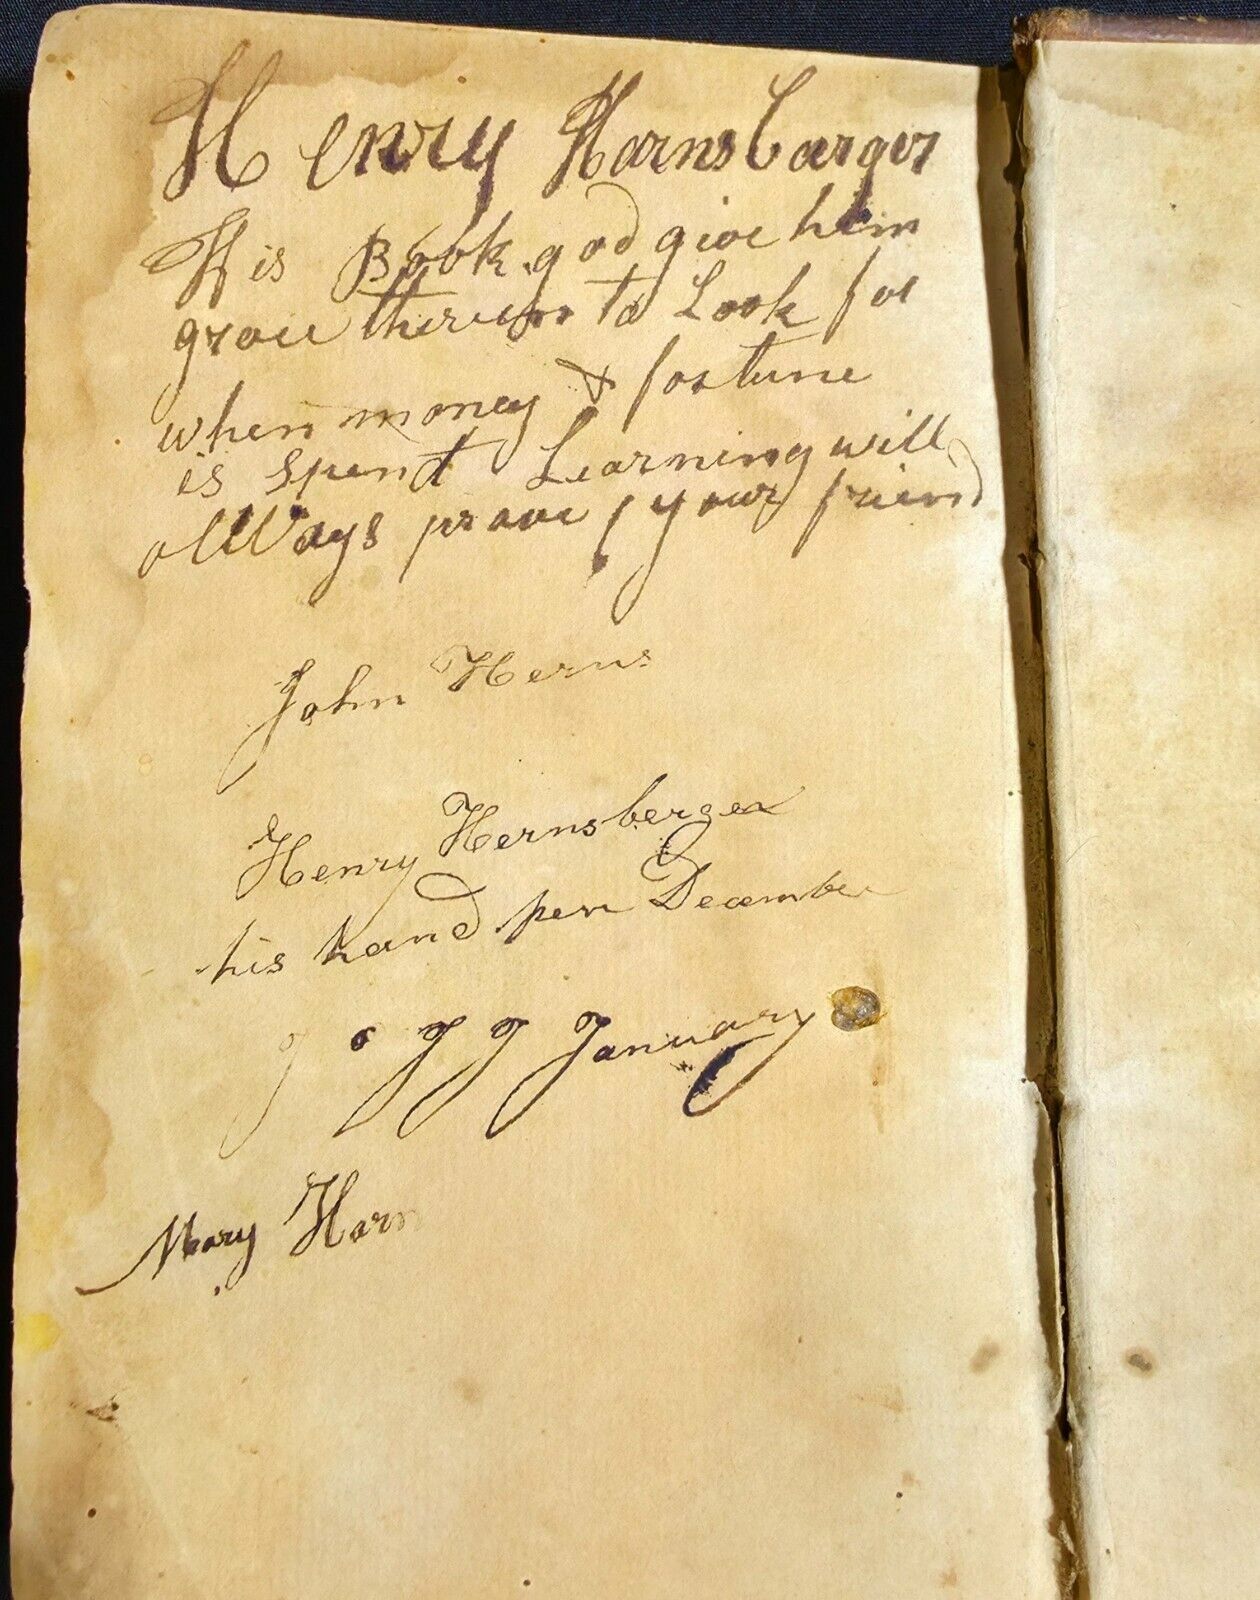 Henry Harnsbarger
His Book god give him
grace therein to Look for
when money & fortune
is spent Learning will
allWays prove your friend
John Herns
Henry Hernsberger
his hand pen December
J J J January
Mary Harn